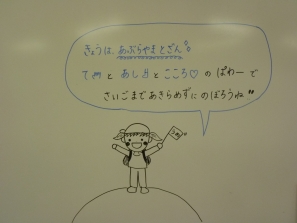 きょうは、あぶらやまとざん
てとあしとこころ♡のぱわーで
さいごまであきらめずにのぼろうね